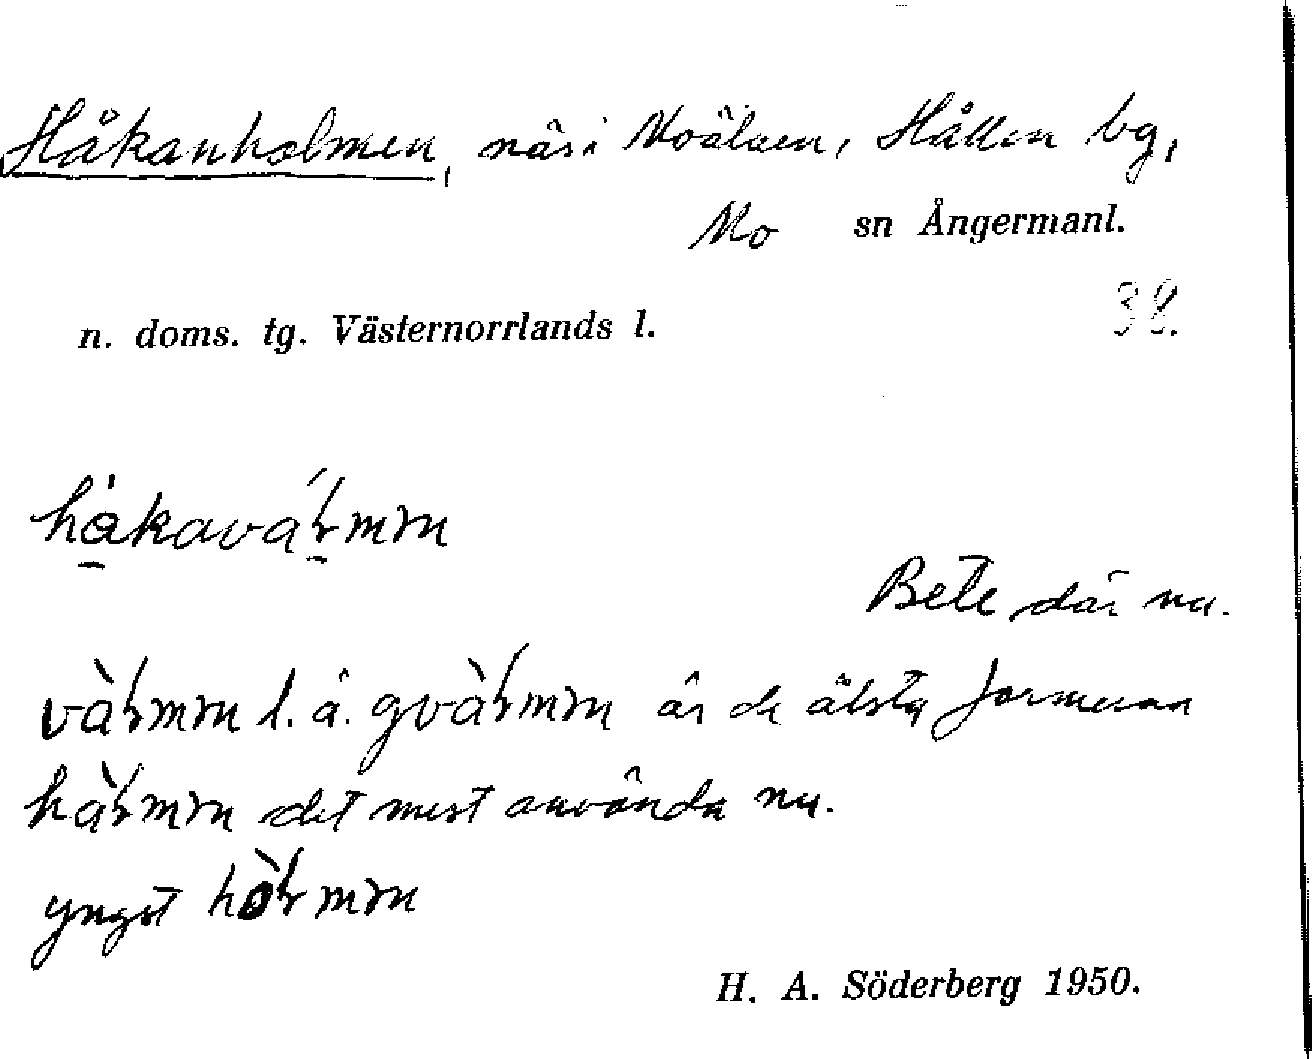 Håkanholmen, näs i Moälven, Hållen bg,
Mo sn Ångermanl.
n. doms. tg. Västernorrlands l. 38.
Bete där nu.
l. å. är de älsta formerna
det mest använda nu.
yngst
H. A. Söderberg 1950.